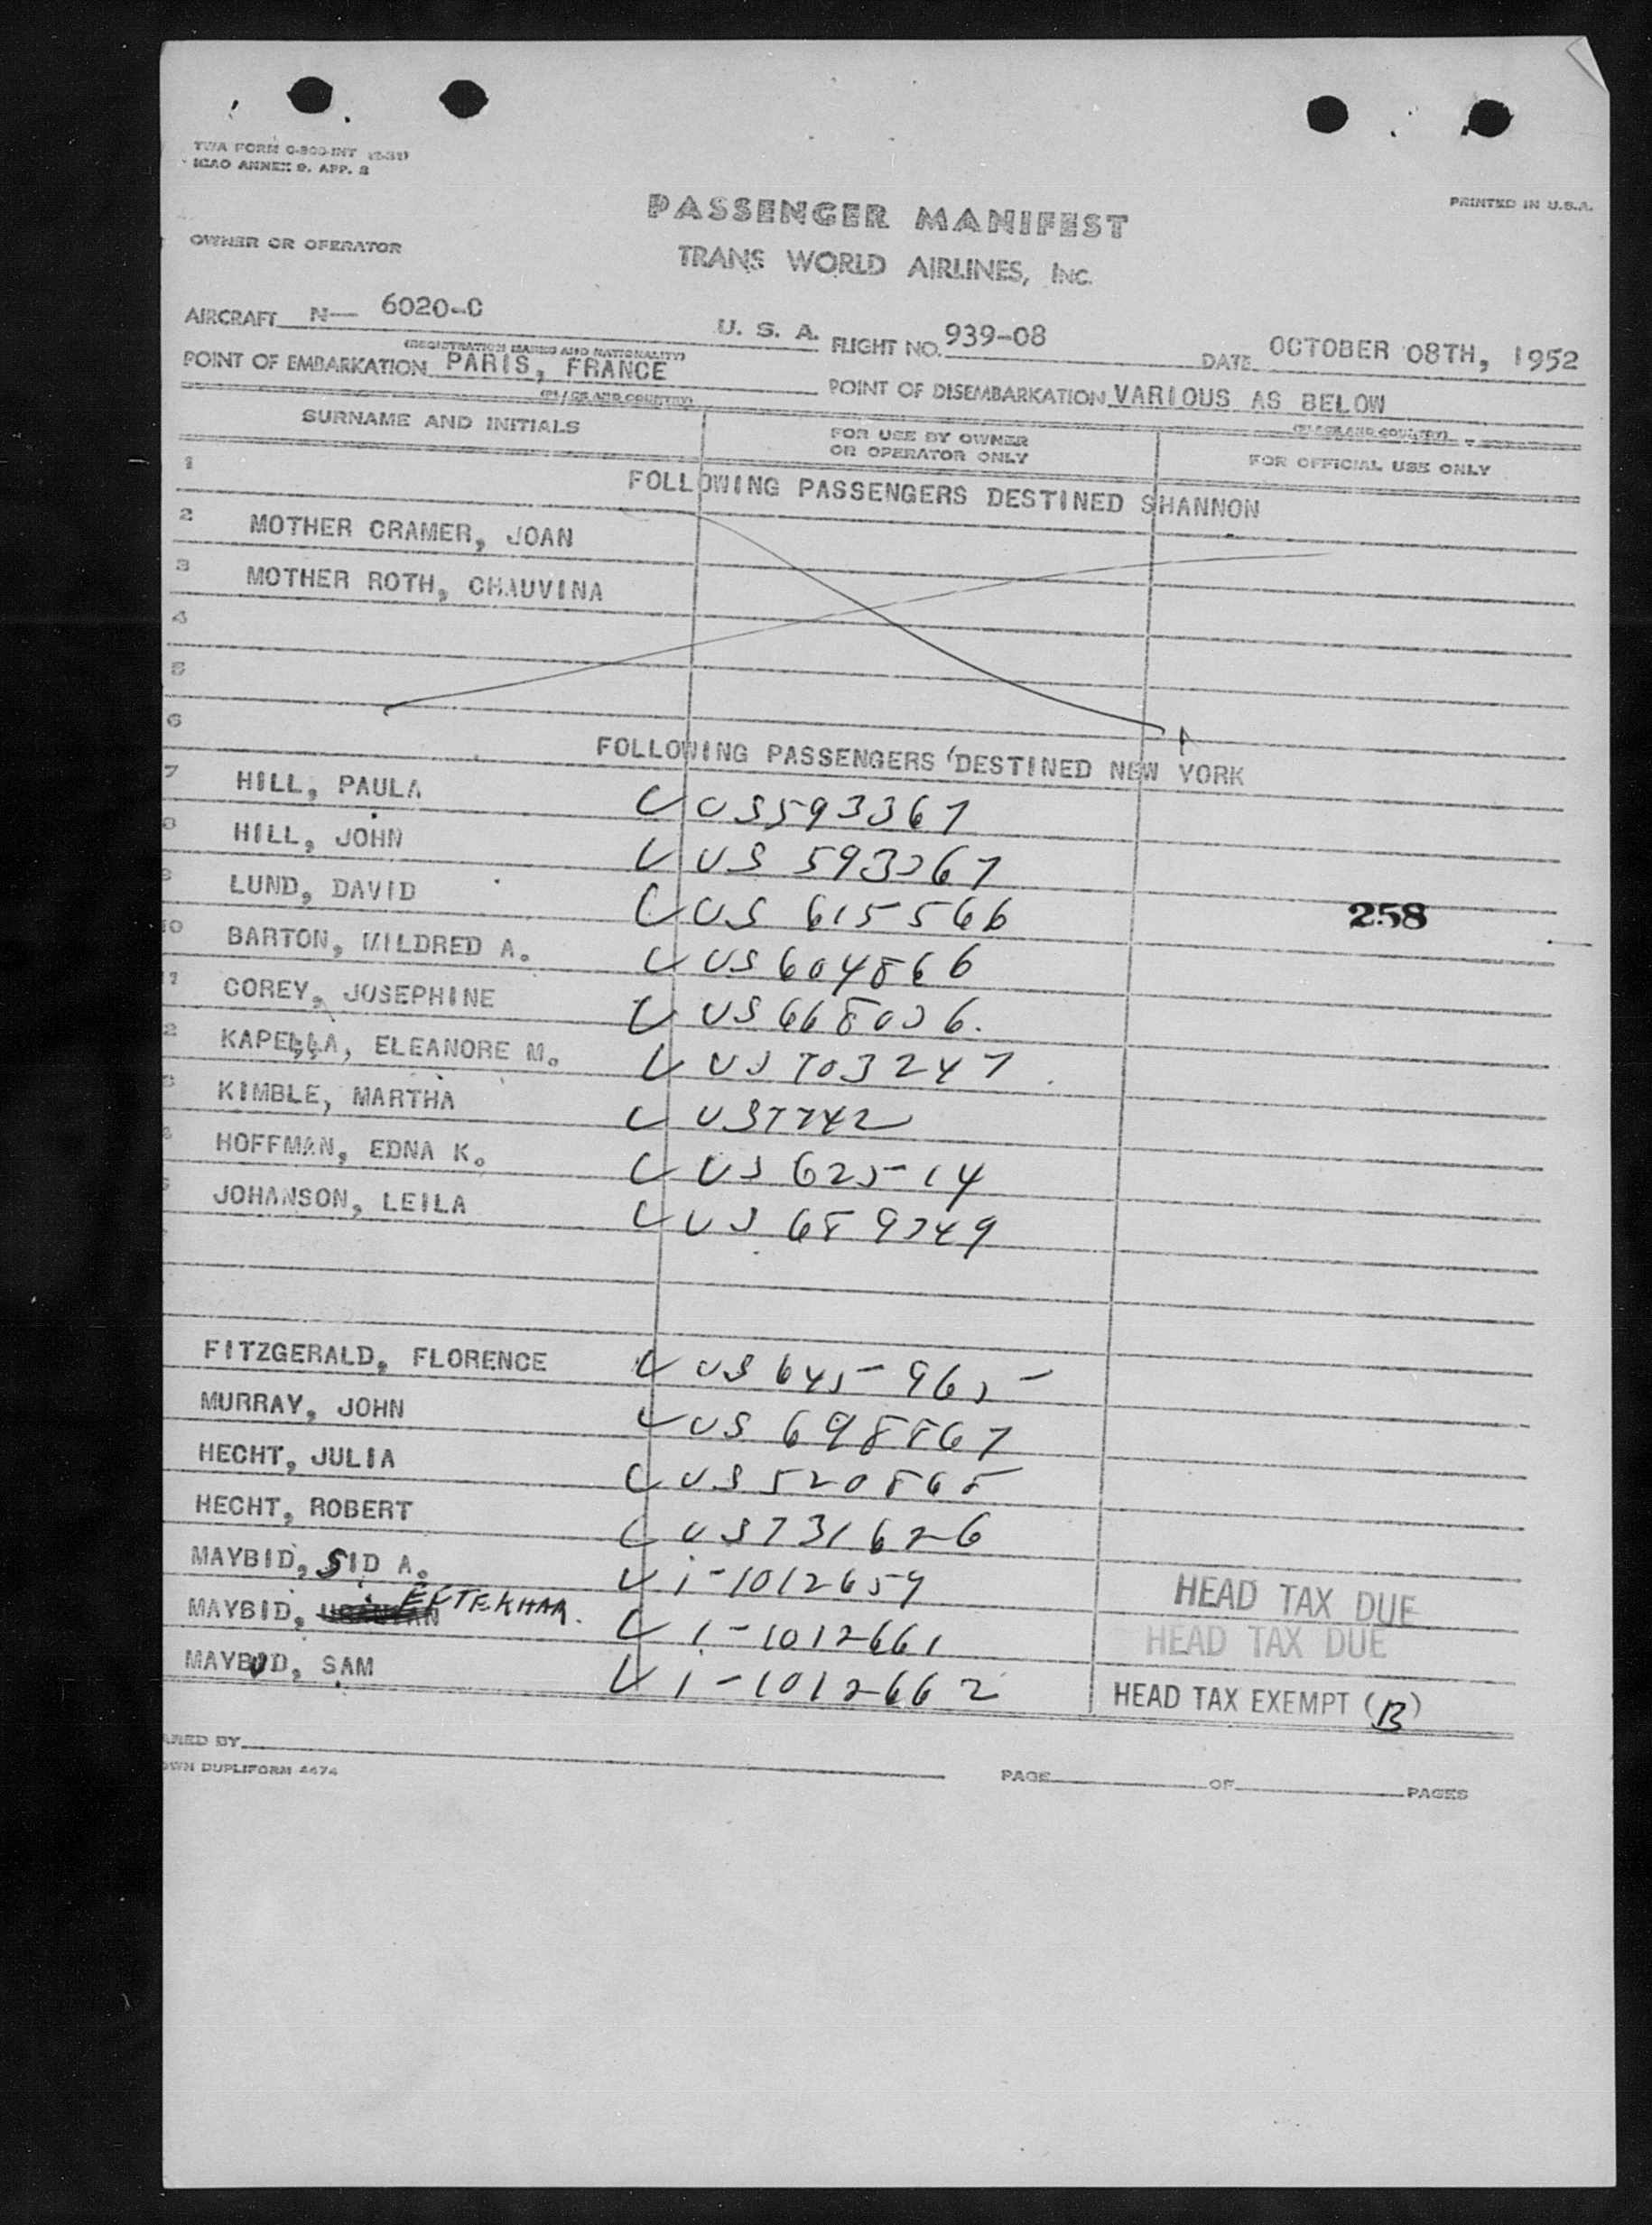 TWA FORM O-300-INT (2-52)
ICAO ANNEX 9, APP. 3
PRINTED IN U.S.A.
PASSENGER MANIFEST
OWNER OR OPERATOR
TRANS WORLD AIRLINES, INC.
AIRCRAFT N— 6020-C U. S. A. FLIGHT NO. 939-08 DATE OCTOBER 08TH, 1952
(REGISTRATION MARKS AND NATIONALITY)
POINT OF EMBARKATION PARIS, FRANCE POINT OF DISEMBARKATION VARIOUS AS BELOW
(PLACE AND COUNTRY) (PLACE AND COUNTRY)
SURNAME AND INITIALS FOR USE BY OWNER OR OPERATOR ONLY FOR OFFICIAL USE ONLY
1 FOLLOWING PASSENGERS DESTINED SHANNON
2 MOTHER CRAMER, JOAN
3 MOTHER ROTH, CHAUVINA
4
5
6 FOLLOWING PASSENGERS DESTINED NEW YORK
7 HILL, PAULA US 593367
8 HILL, JOHN US 593367
9 LUND, DAVID US 615566 258
10 BARTON, MILDRED A. US 604866
11 COREY, JOSEPHINE
2 KAPELLA, ELEANORE M. US 703247
3 KIMBLE, MARTHA
HOFFMAN, EDNA K. US 62514
JOHANSON, LEILA
FITZGERALD, FLORENCE US 645965
MURRAY, JOHN US 698867
HECHT, JULIA
HECHT, ROBERT US 731626
MAYBID, SID A. i-1012659 HEAD TAX DUE
MAYBID, EFTEKHAR. i-1012661 HEAD TAX DUE
MAYBUD, SAM i-1012662 HEAD TAX EXEMPT (B)
ARED BY
OWN DUPLIFORM 4474
PAGE OF PAGES